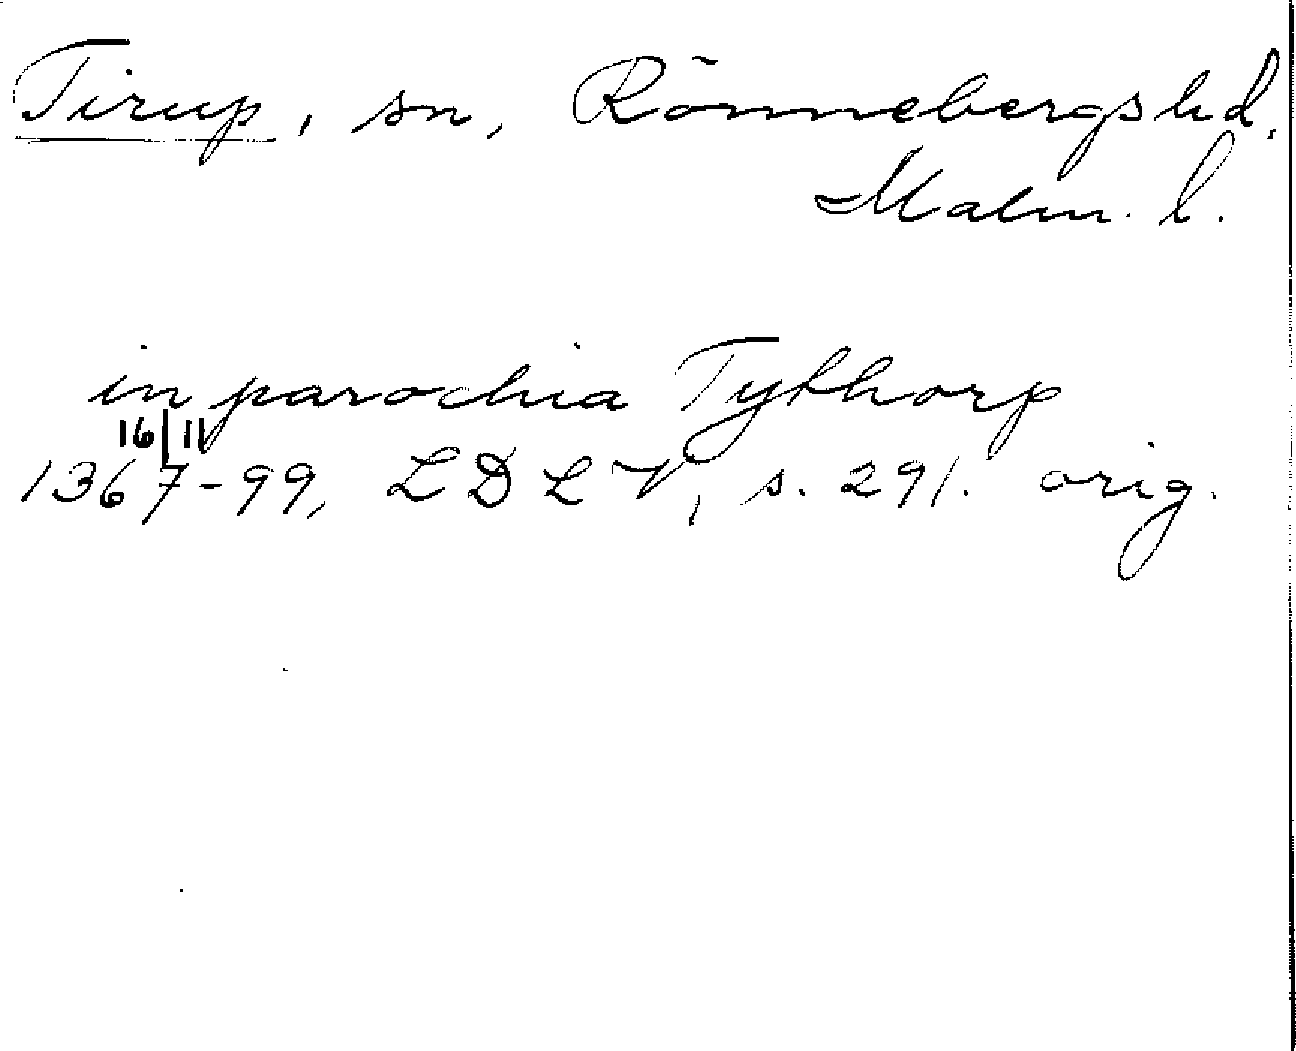 Tirup, sn, Rönnebergs hd,
Malm. l.
in parochia Tythorp
16/11
1367-99, LDLV, s. 291. orig.